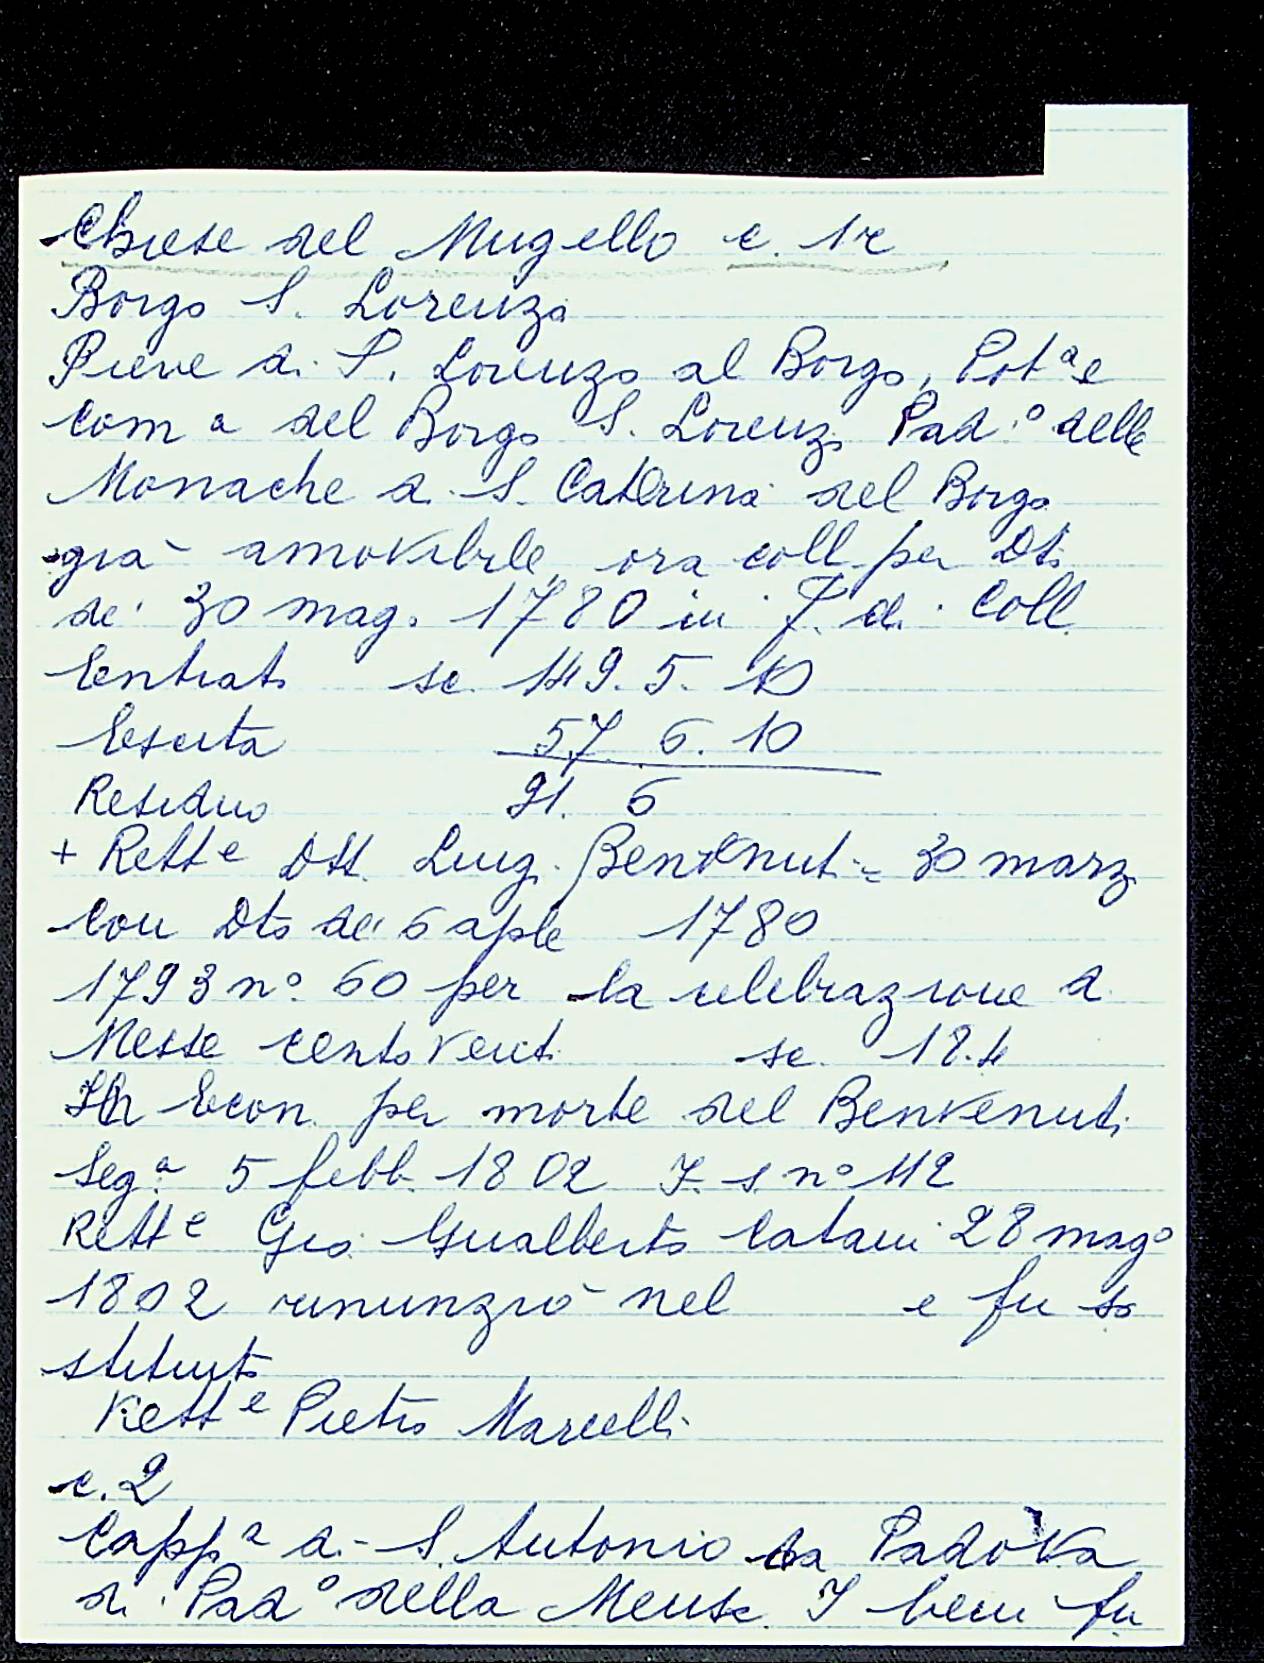 Chiese del Mugello c. 1r
Borgo S. Lorenzo
Pieve di S. Lorenzo al Borgo, Potª e
Com ª del Borgo S. Lorenzo Pad.º delle
Monache di S. Caterina del Borgo
già amovibile, ora coll. per Dto
de' 30 mag. 1780 in F. di Coll.
Entrata sc. 149. 5. 10
Escita 57. 6. 10
Residuo 91. 6
+ Rett e Dtt. Luigi Benvenuti = 30 marzo
Con Dto de' 6 aple 1780
1793 nº. 60 per la celebrazione di
Messe centoventi sc. 18.4
In Econ. per morte del Benvenuti
Seg.ª 5 febb. 1802 F. s. nº 112
Rett e Gio. Gualberto Catani 28 magº
1802 rinunziò nel e fu so
stituito
Rett e Pietro Marcelli
c. 2
Capp.ª di S. Antonio da Padova
di Padº della Mensa. I beni fu